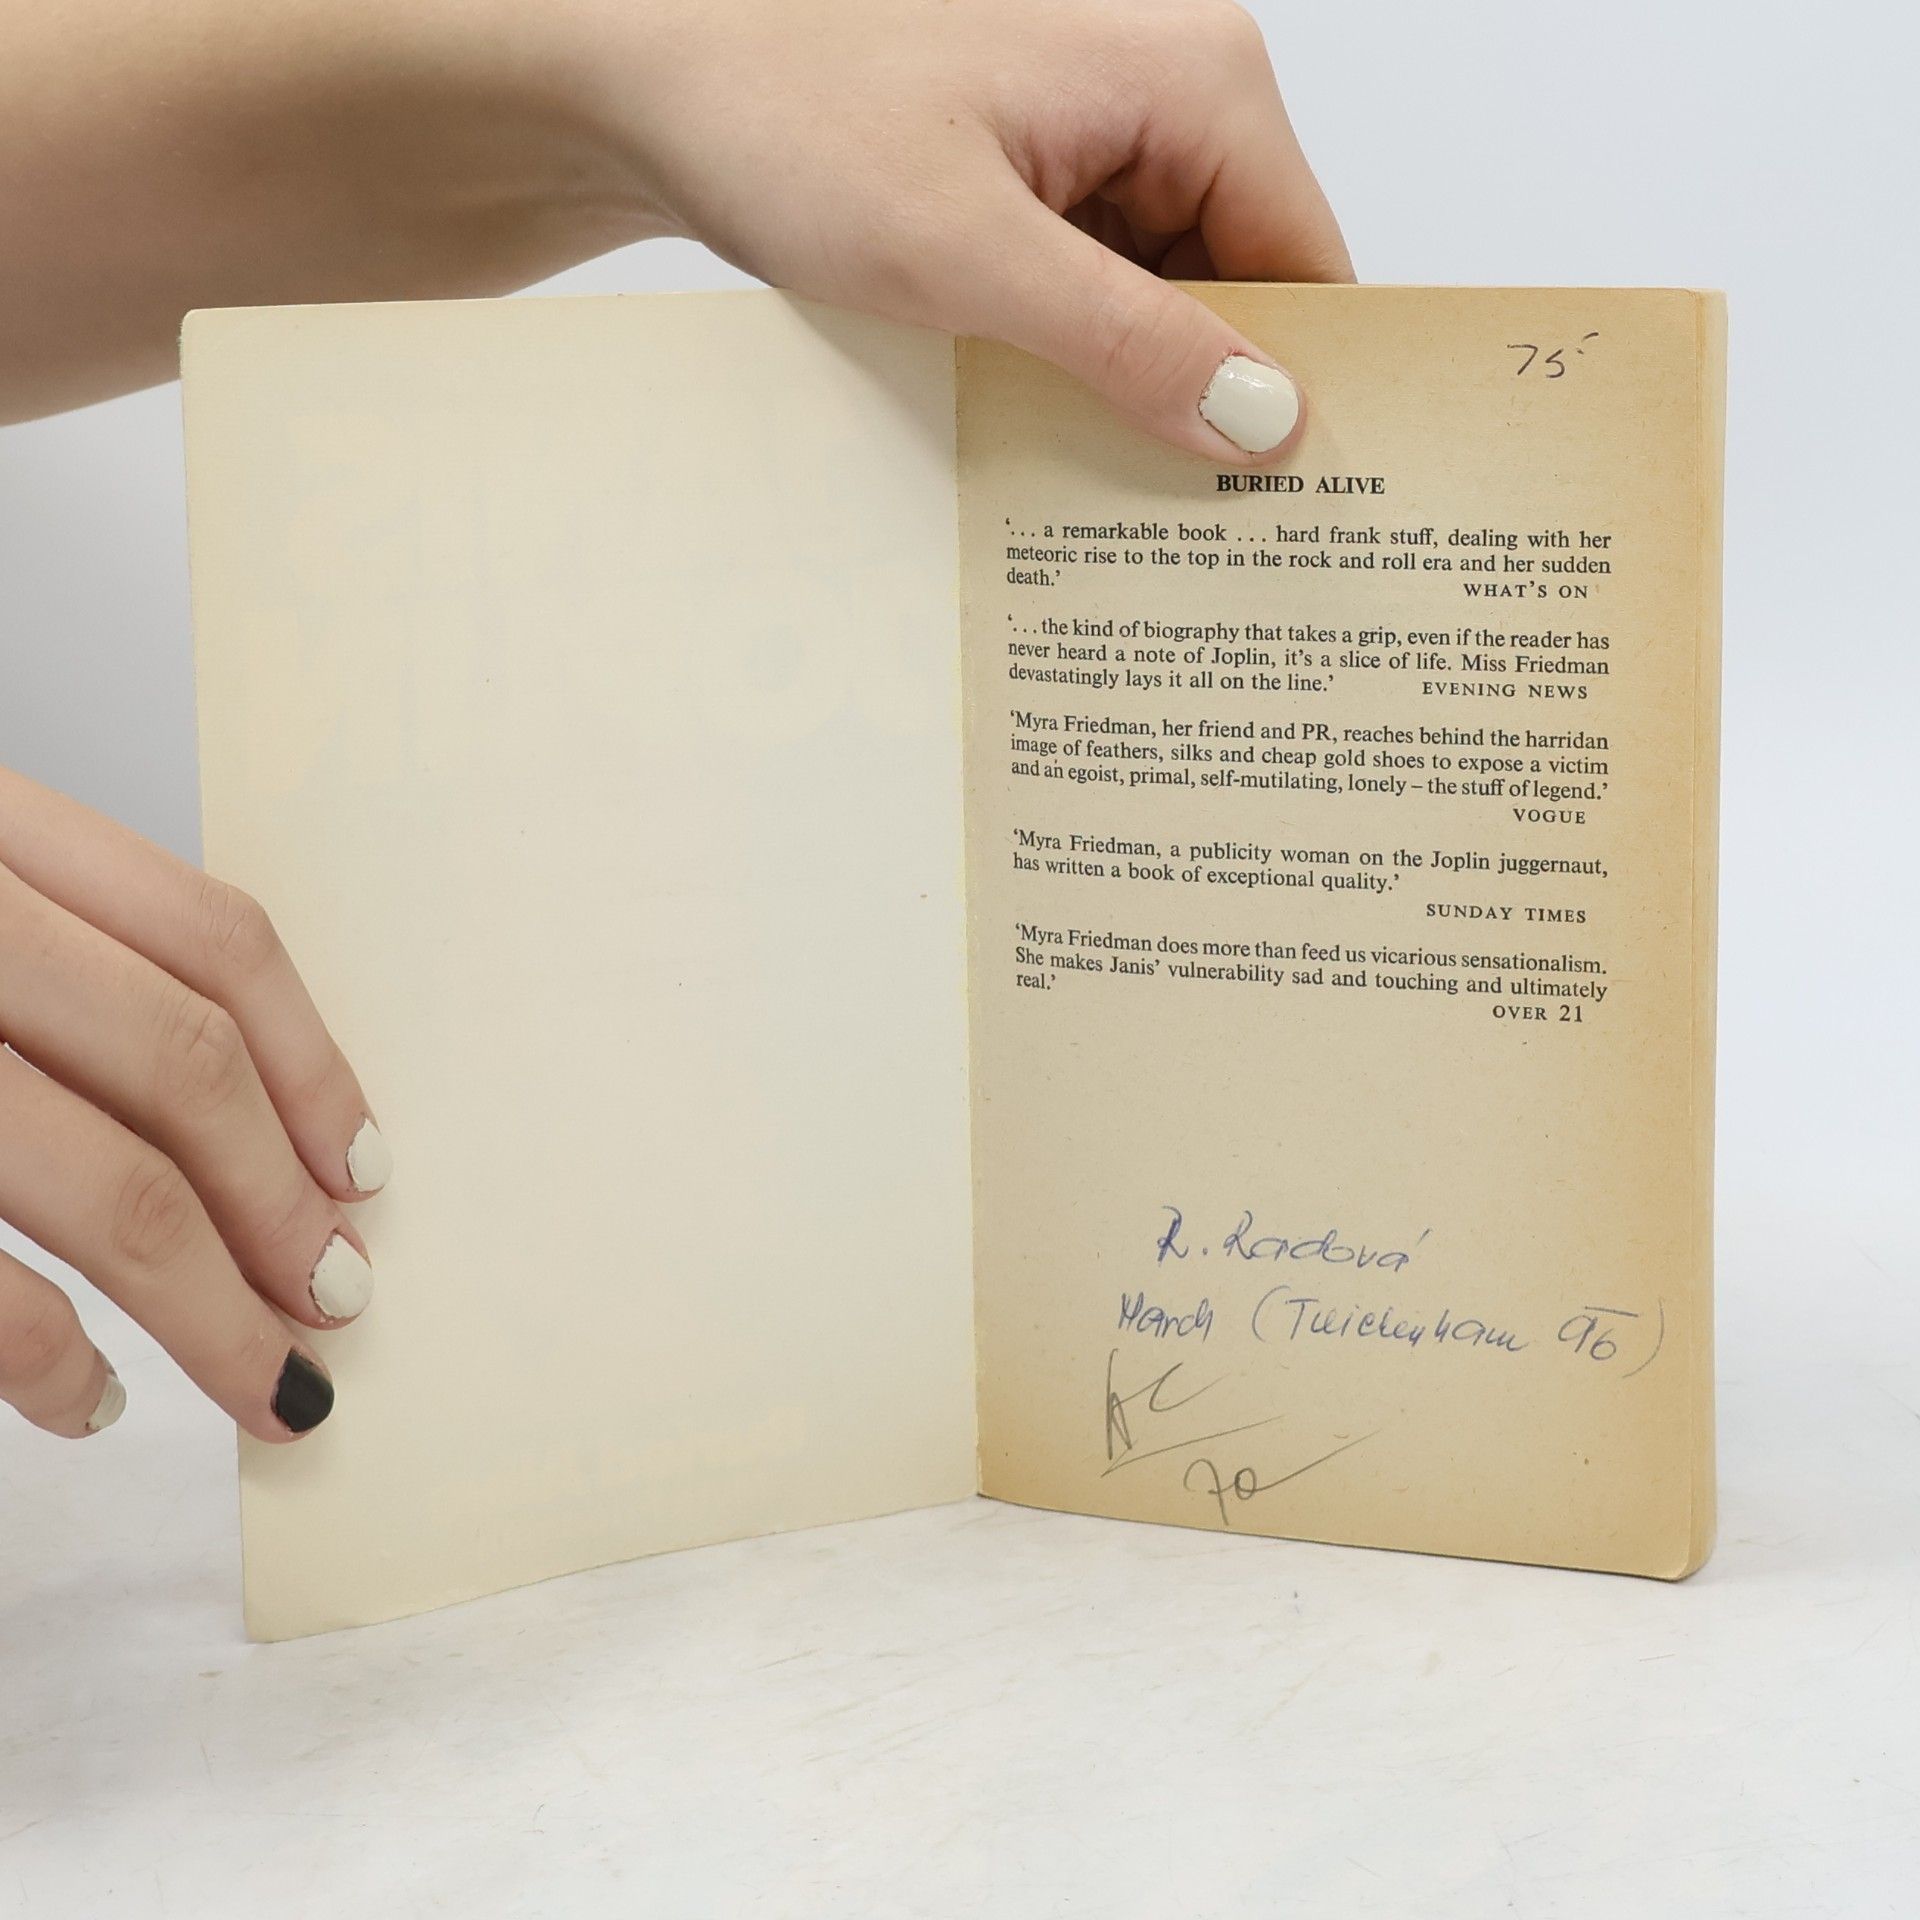 75
BURIED ALIVE
‘... a remarkable book ... hard frank stuff, dealing with her
meteoric rise to the top in the rock and roll era and her sudden
death.’ WHAT’S ON
‘... the kind of biography that takes a grip, even if the reader has
never heard a note of Joplin, it’s a slice of life. Miss Friedman
devastatingly lays it all on the line.’ EVENING NEWS
‘Myra Friedman, her friend and PR, reaches behind the harridan
image of feathers, silks and cheap gold shoes to expose a victim
and an egoist, primal, self-mutilating, lonely – the stuff of legend.’
VOGUE
‘Myra Friedman, a publicity woman on the Joplin juggernaut,
has written a book of exceptional quality.’
SUNDAY TIMES
‘Myra Friedman does more than feed us vicarious sensationalism.
She makes Janis’ vulnerability sad and touching and ultimately
real.’
OVER 21
R. Radová
March (Twickenham 96)
70